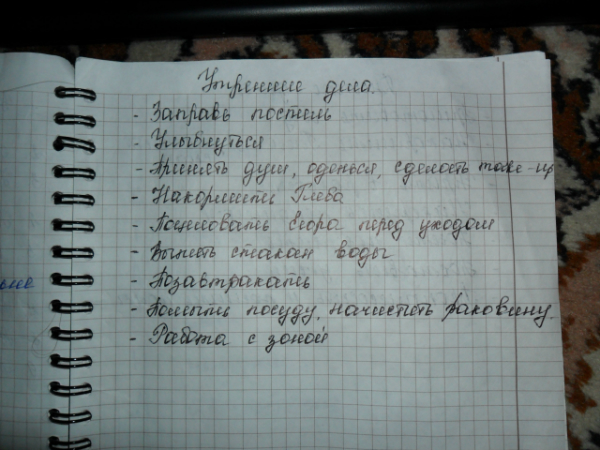 Утренние дела.
- Заправь постель
- Улыбнуться
- Принять душ, оденься, сделать make-up
- Накормить Глеба
- Поцеловать Егора перед уходом
- Выпить стакан воды
- Позавтракать
- Помыть посуду, начистить раковину.
- Работа с зоной